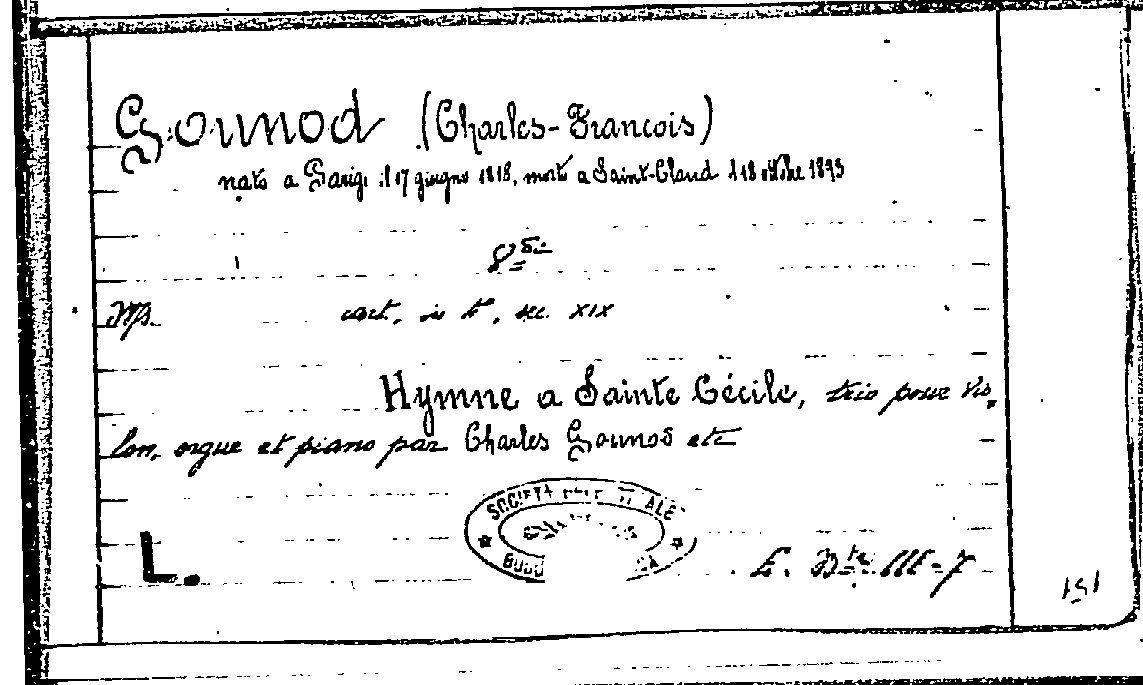 Gounod (Charles-François)
nato a Parigi il 17 giugno 1818, morto a Saint-Cloud il 18 ottobre 1893
Ms. cart. in 4°, sec. XIX
Hymne a Sainte Cécile, trio pour vio-
lon, orgue et piano par Charles Gounod etc
SOCIETÀ
L.
E. Bta III-7
151